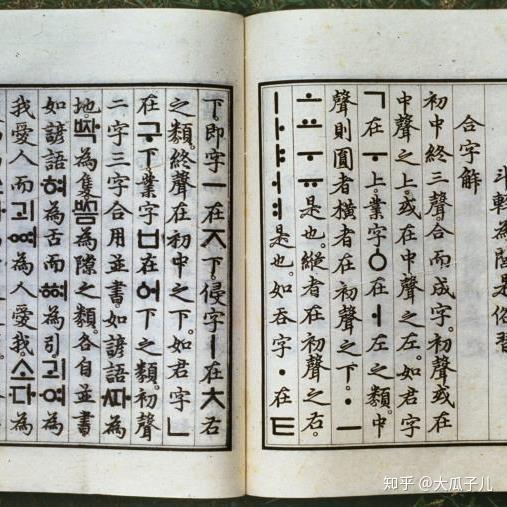 斗輕為閭是俗習
合字解
初中終三聲。合而成字。初聲或在
中聲之上。或在中聲之左。如君字
ㄱ在ㅜ上。業字ㆁ在ㅓ左之類。中
聲則圓者橫者在初聲之下。ㆍㅡ
ㅗㅛㅜㅠ是也。縱者在初聲之右。
ㅣㅏㅑㅓㅕ是也。如吞字ㆍ在ㅌ
下。即字ㅡ在ㅈ下。侵字ㅣ在ㅊ右
之類。終聲在初中之下。如君字ㄴ
在구下。業字ㅂ在ᅌᅥ下之類。初聲
二字三字合用並書。如諺語ᄯᅡ為
地。ᄧᅡᆨ為隻。ᄢᅳᆷ為隙之類。各自並書
如諺語혀為舌而ᅘᅧ為引。괴여為
我愛人而괴ᅇᅧ為人愛我。소다為
知乎 @大瓜子儿